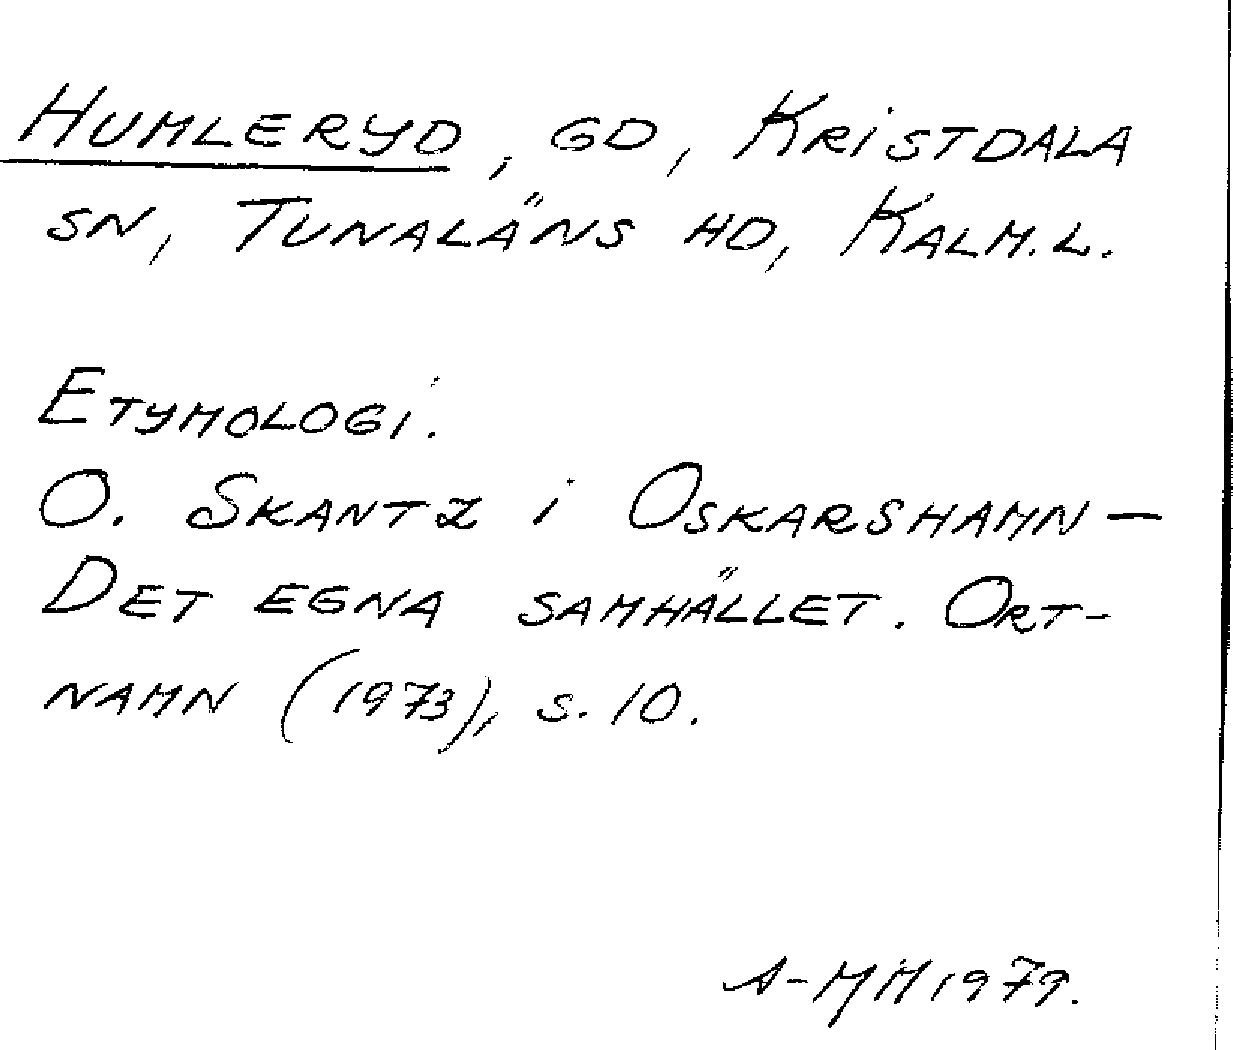 HUMLERYD, GD, KRISTDALA
SN, TUNALÄNS HD, KALM.L.
ETYMOLOGI.
O. SKANTZ i OSKARSHAMN –
DET EGNA SAMHÄLLET. ORT-
NAMN (1973), S. 10.
A-MM 1979.